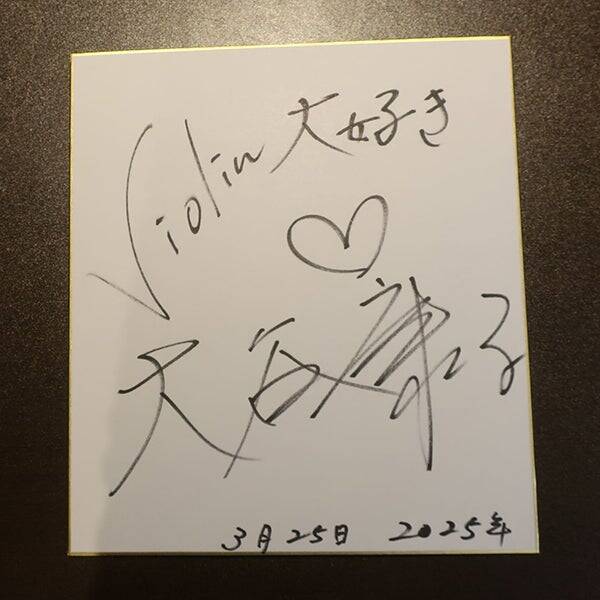 Violin 大好き
大谷康子
3月25日 2025年